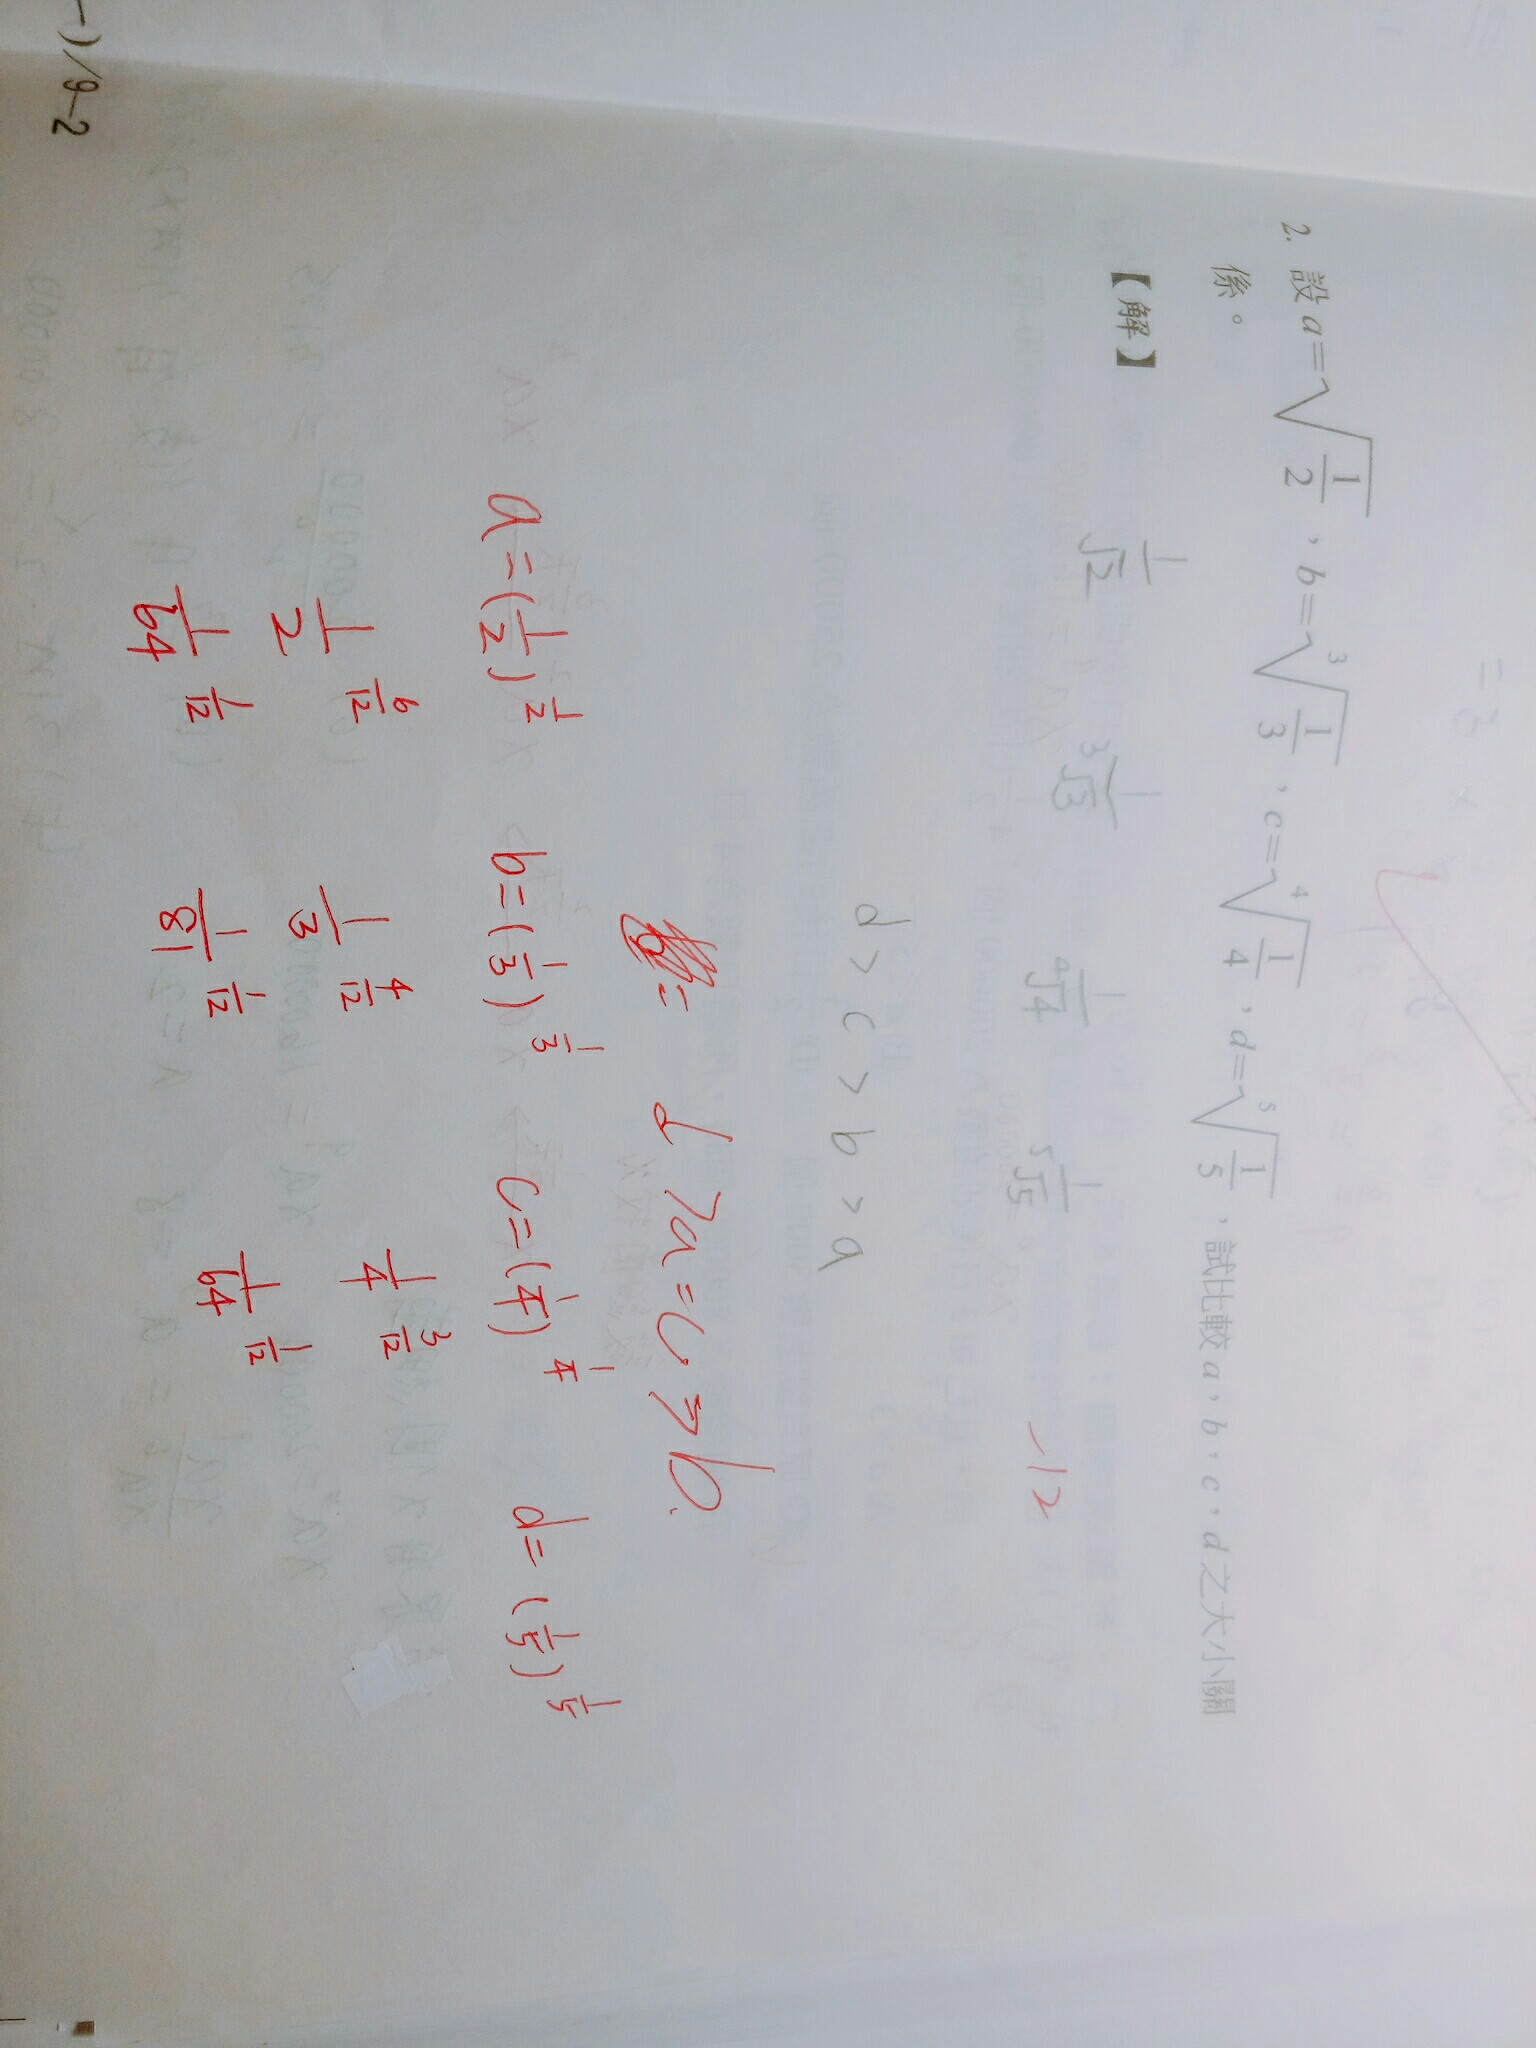 2. 設 a=√(1/2)，b=∛(1/3)，c=∜(1/4)，d=⁵√(1/5)，試比較 a，b，c，d 之大小關
係。
【解】
1/√2 1/³√3 1/⁴√4 1/⁵√5
-12
d > c > b > a
d > a = c > b.
a=(1/2)^(1/2) b=(1/3)^(1/3) c=(1/4)^(1/4) d=(1/5)^(1/5)
1/2^(6/12) 1/3^(4/12) 1/4^(3/12)
1/64^(1/12) 1/81^(1/12) 1/64^(1/12)